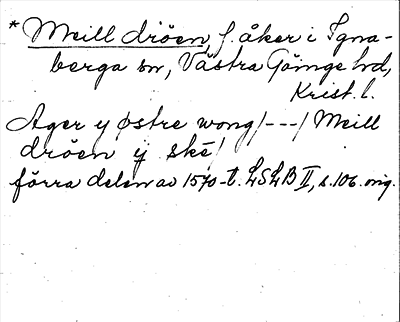 * Meill dröen, f. åker i Igna-
berga sn, Västra Göinge hd,
Krist. l.
Ager y østre wong /---/ Meill
dröen ÿ ské /
förra delen av 1570-t. LSLB II, s. 106. orig.